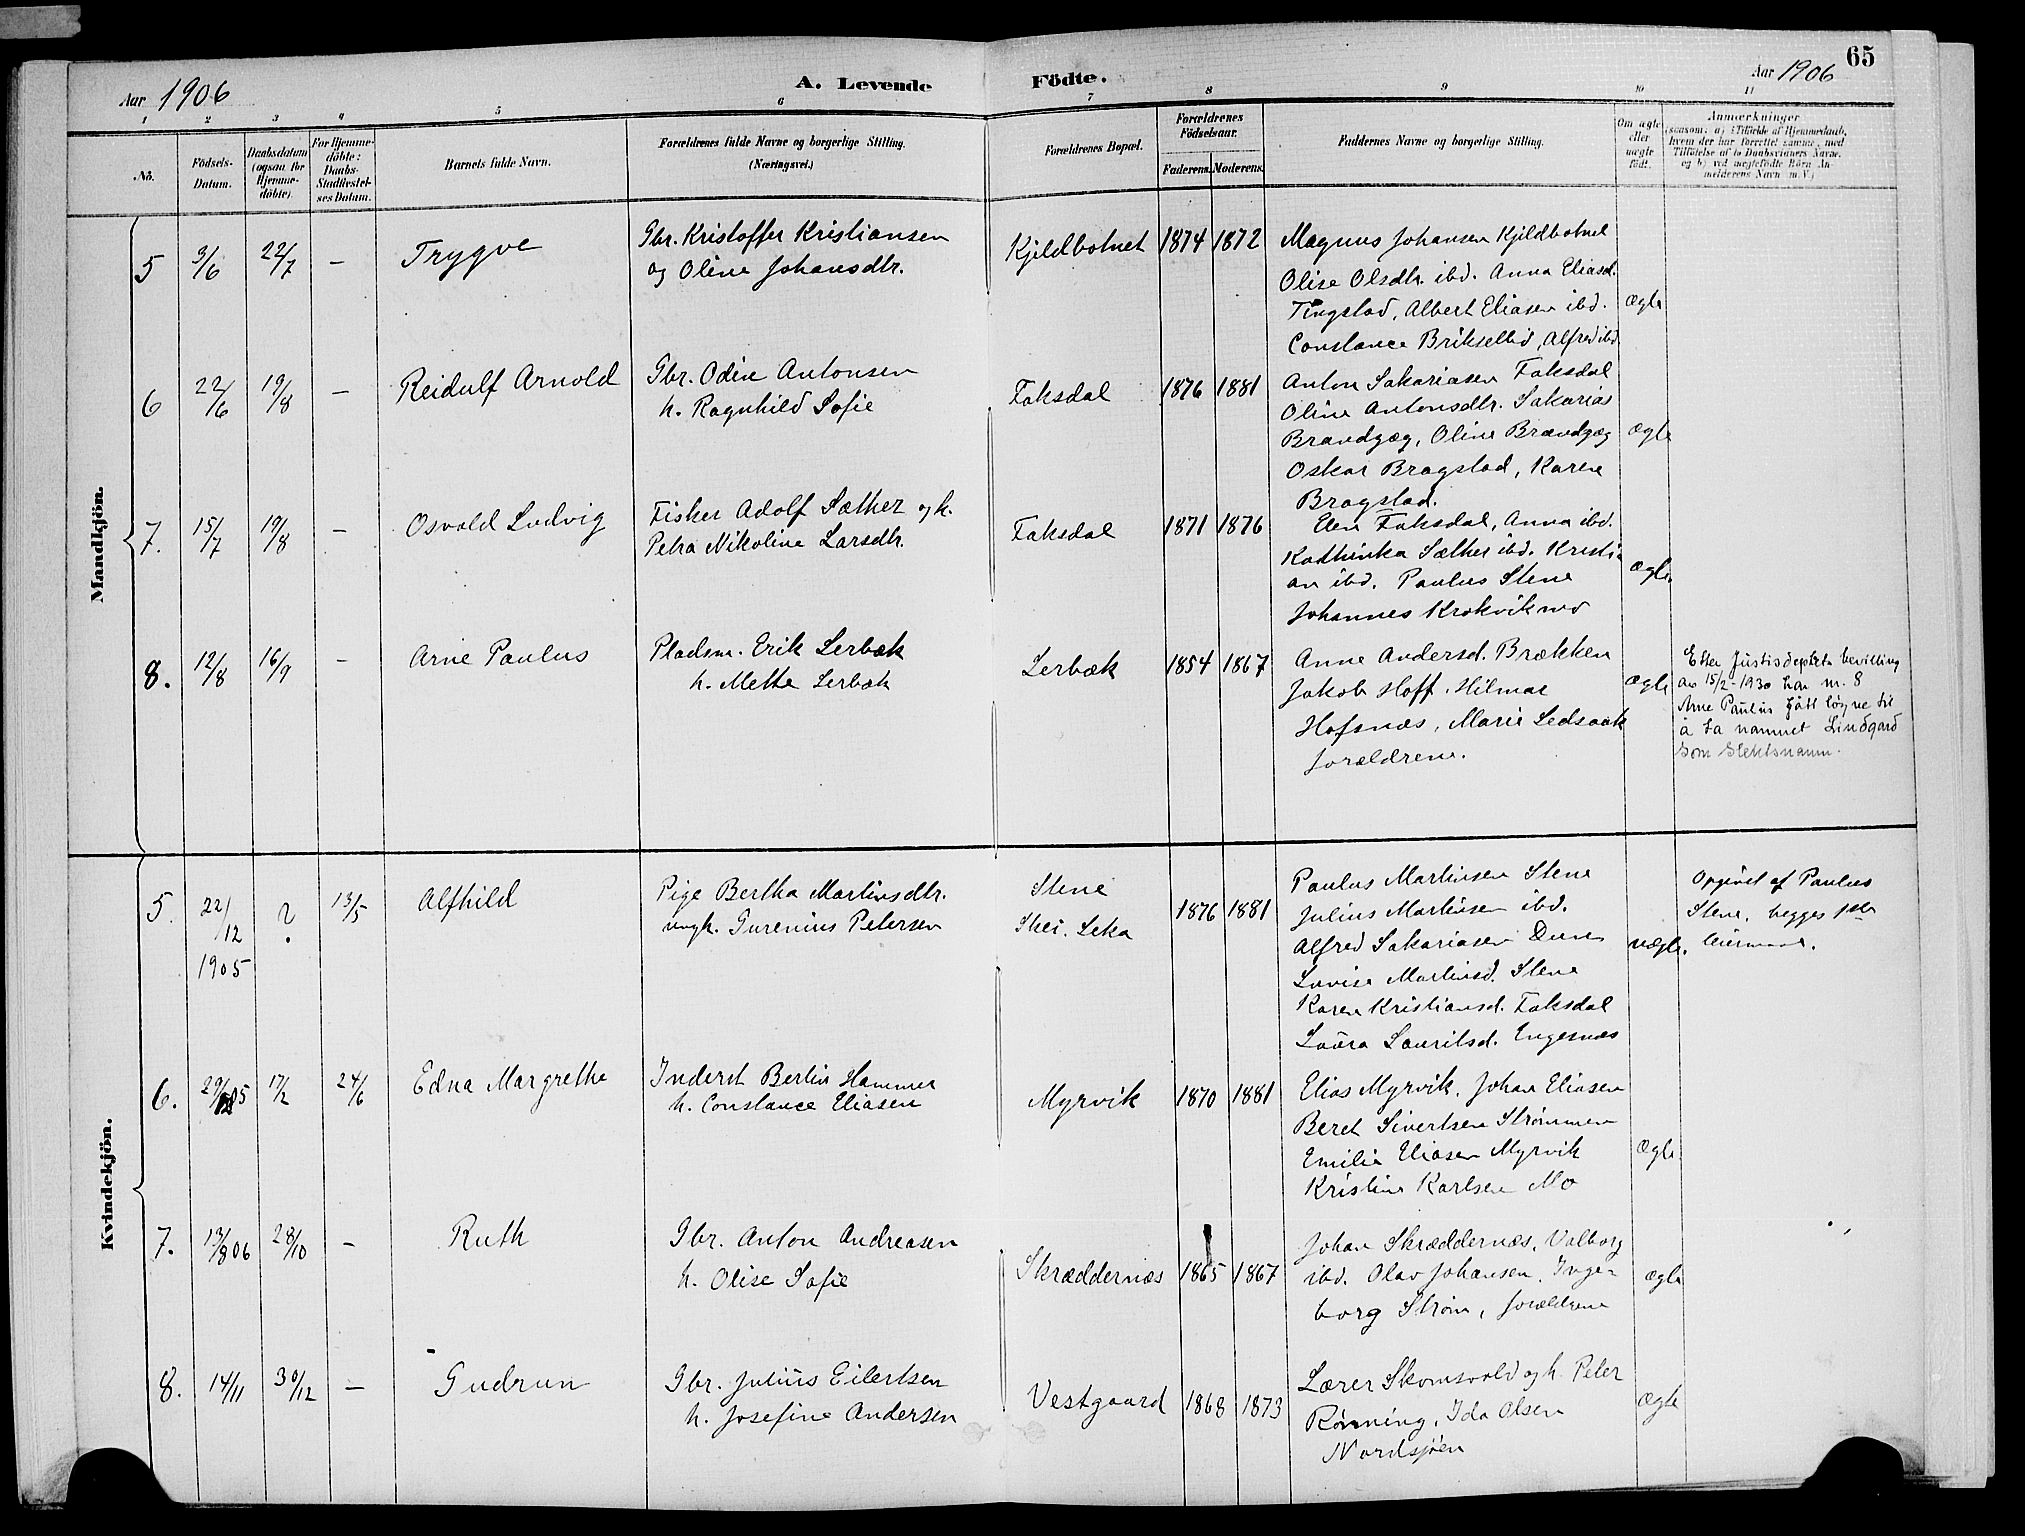 65
Aar 1906
A. Levende Födte.
Aar 1906
1 2 3 4 5 6 7 8 9 10 11
No.
Födsels-Datum.
Daabsdatum (ogsaa for Hjemme-döbte)
For Hjemme-döbte: Daabs-Stadfæstel-ses Datum.
Barnets fulde Navn.
Forældrenes fulde Navne og borgerlige Stilling. (Næringsvei.)
Forældrenes Bopæl.
Forældrenes Födselsaar.
Faderens. Moderens.
Faddernes Navne og borgerlige Stilling.
Om ægte eller uægte født.
Anmærkninger
(saasom: a) i Tilfælde af Hjemmedaab, hvem der har forrettet samme, med Tilføielse af to Daabsvidners Navne, og b) ved uegtefödte Börn Anmelderens Navn m. V.)
Mandkjön.
5 3/6 22/7 – Trygve
Gbr. Kristoffer Kristiansen
og Oline Johansdtr.
Kjeldbotnet 1874 1872
Magnus Johansen Kjeldbotnet
Olise Olsdtr. ibd. Anna Eliasd.
Tingstad, Albert Eliasen ibd.
Constance Briksellid, Alfred ibd.
Ægte
6 22/6 19/8 – Reidulf Arnold
Gbr. Odin Antonsen
h. Ragnhild Sofie
Faksdal 1876 1881
Anton Sakariasen Faksdal
Oline Antonsdtr. Sakarias
Brandzæg, Oline Brandzæg
Oskar Bragstad, Karen
Bragstad.
Ægte
7. 15/7 19/8 – Osvald Ludvig
Fisker Adolf Sæther og h.
Petra Nikoline Larsdtr.
Faksdal 1871 1876
Elen Faksdal, Anna ibd.
Kathinka Sæther ibd. Kristi-
an ibd. Paulus Stene
Johannes Krokvikmo
Ægte
8. 12/8 16/9 – Arne Paulus
Pladsm. Erik Lerbæk
h. Mette Lerbæk
Lerbæk 1854 1867
Anne Andersd. Brækken
Jakob Hoff. Hilmar
Hofsnæs, Marie Ledsaak
forældrene.
Ægte
Etter Justisdeptets bevilling
av 15/2-1930 har nr. 8
Arne Paulus fått løyve til
å ta namnet Lindgard
som slektsnamn.
Kvindekjön.
5. 22/12 1905 ? 13/5 Alfhild
Pige Bertha Martinsdtr.
ungk. Gurenius Petersen
Stene
Skei. Leka 1876 1881
Paulus Martinsen Stene
Julius Martinsen ibd.
Alfred Sakariasen Dunes
Lovise Martinsd. Stene
Karen Kristiansd. Faksdal
Laura Lauritsd. Engesnæs
uægte.
Opgivet af Paulus
Stene, begges 1ste
leiermaal.
6. 29/12 05 17/2 24/6 Edna Margrethe
Inderst Bertin Hammer
h. Constance Eliasen
Myrvik 1870 1881
Elias Myrvik, Johan Eliasen
Beret Sivertsen Strømmen
Emilie Eliasen Myrvik
Kristine Karlsen Mo
Ægte
7. 13/8 06 28/10 – Ruth
Gbr. Anton Andreasen
h. Olise Sofie
Skræddernæs 1865 1867
Johan Skræddernæs, Valborg
ibd. Olav Johansen, Inge-
borg Strøm, forældrene
Ægte
8. 14/11 30/12 – Gudrun
Gbr. Julius Eilertsen
h. Josefine Andersen
Vestgaard 1868 1873
Lærer Skomsvold og h. Peter
Rønning, Ida Olsen
Nordsjøen
Ægte